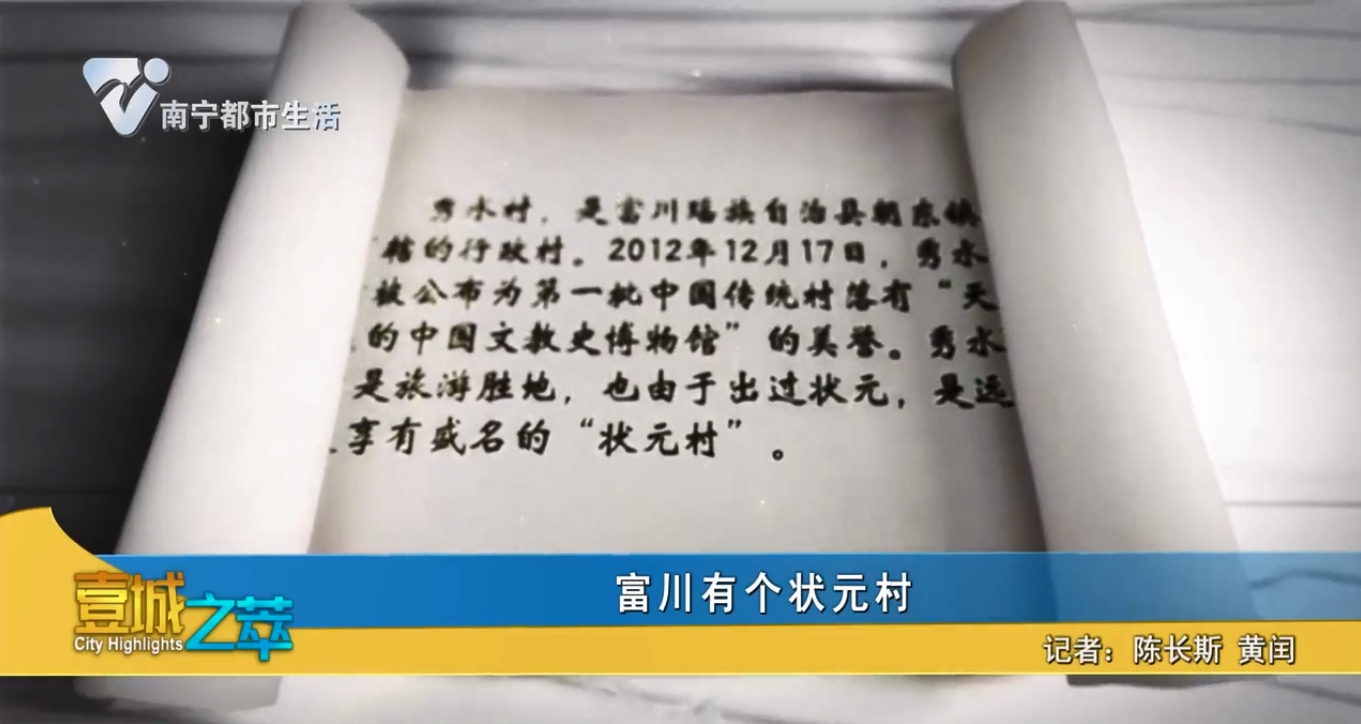 南宁都市生活
秀水村，是富川瑶族自治县朝东镇
辖的行政村。2012年12月17日，秀水
被公布为第一批中国传统村落有“天
的中国文教史博物馆”的美誉。秀水
是旅游胜地，也由于出过状元，是远
享有盛名的“状元村”。
富川有个状元村
壹城之萃
City Highlights
记者：陈长斯 黄闰